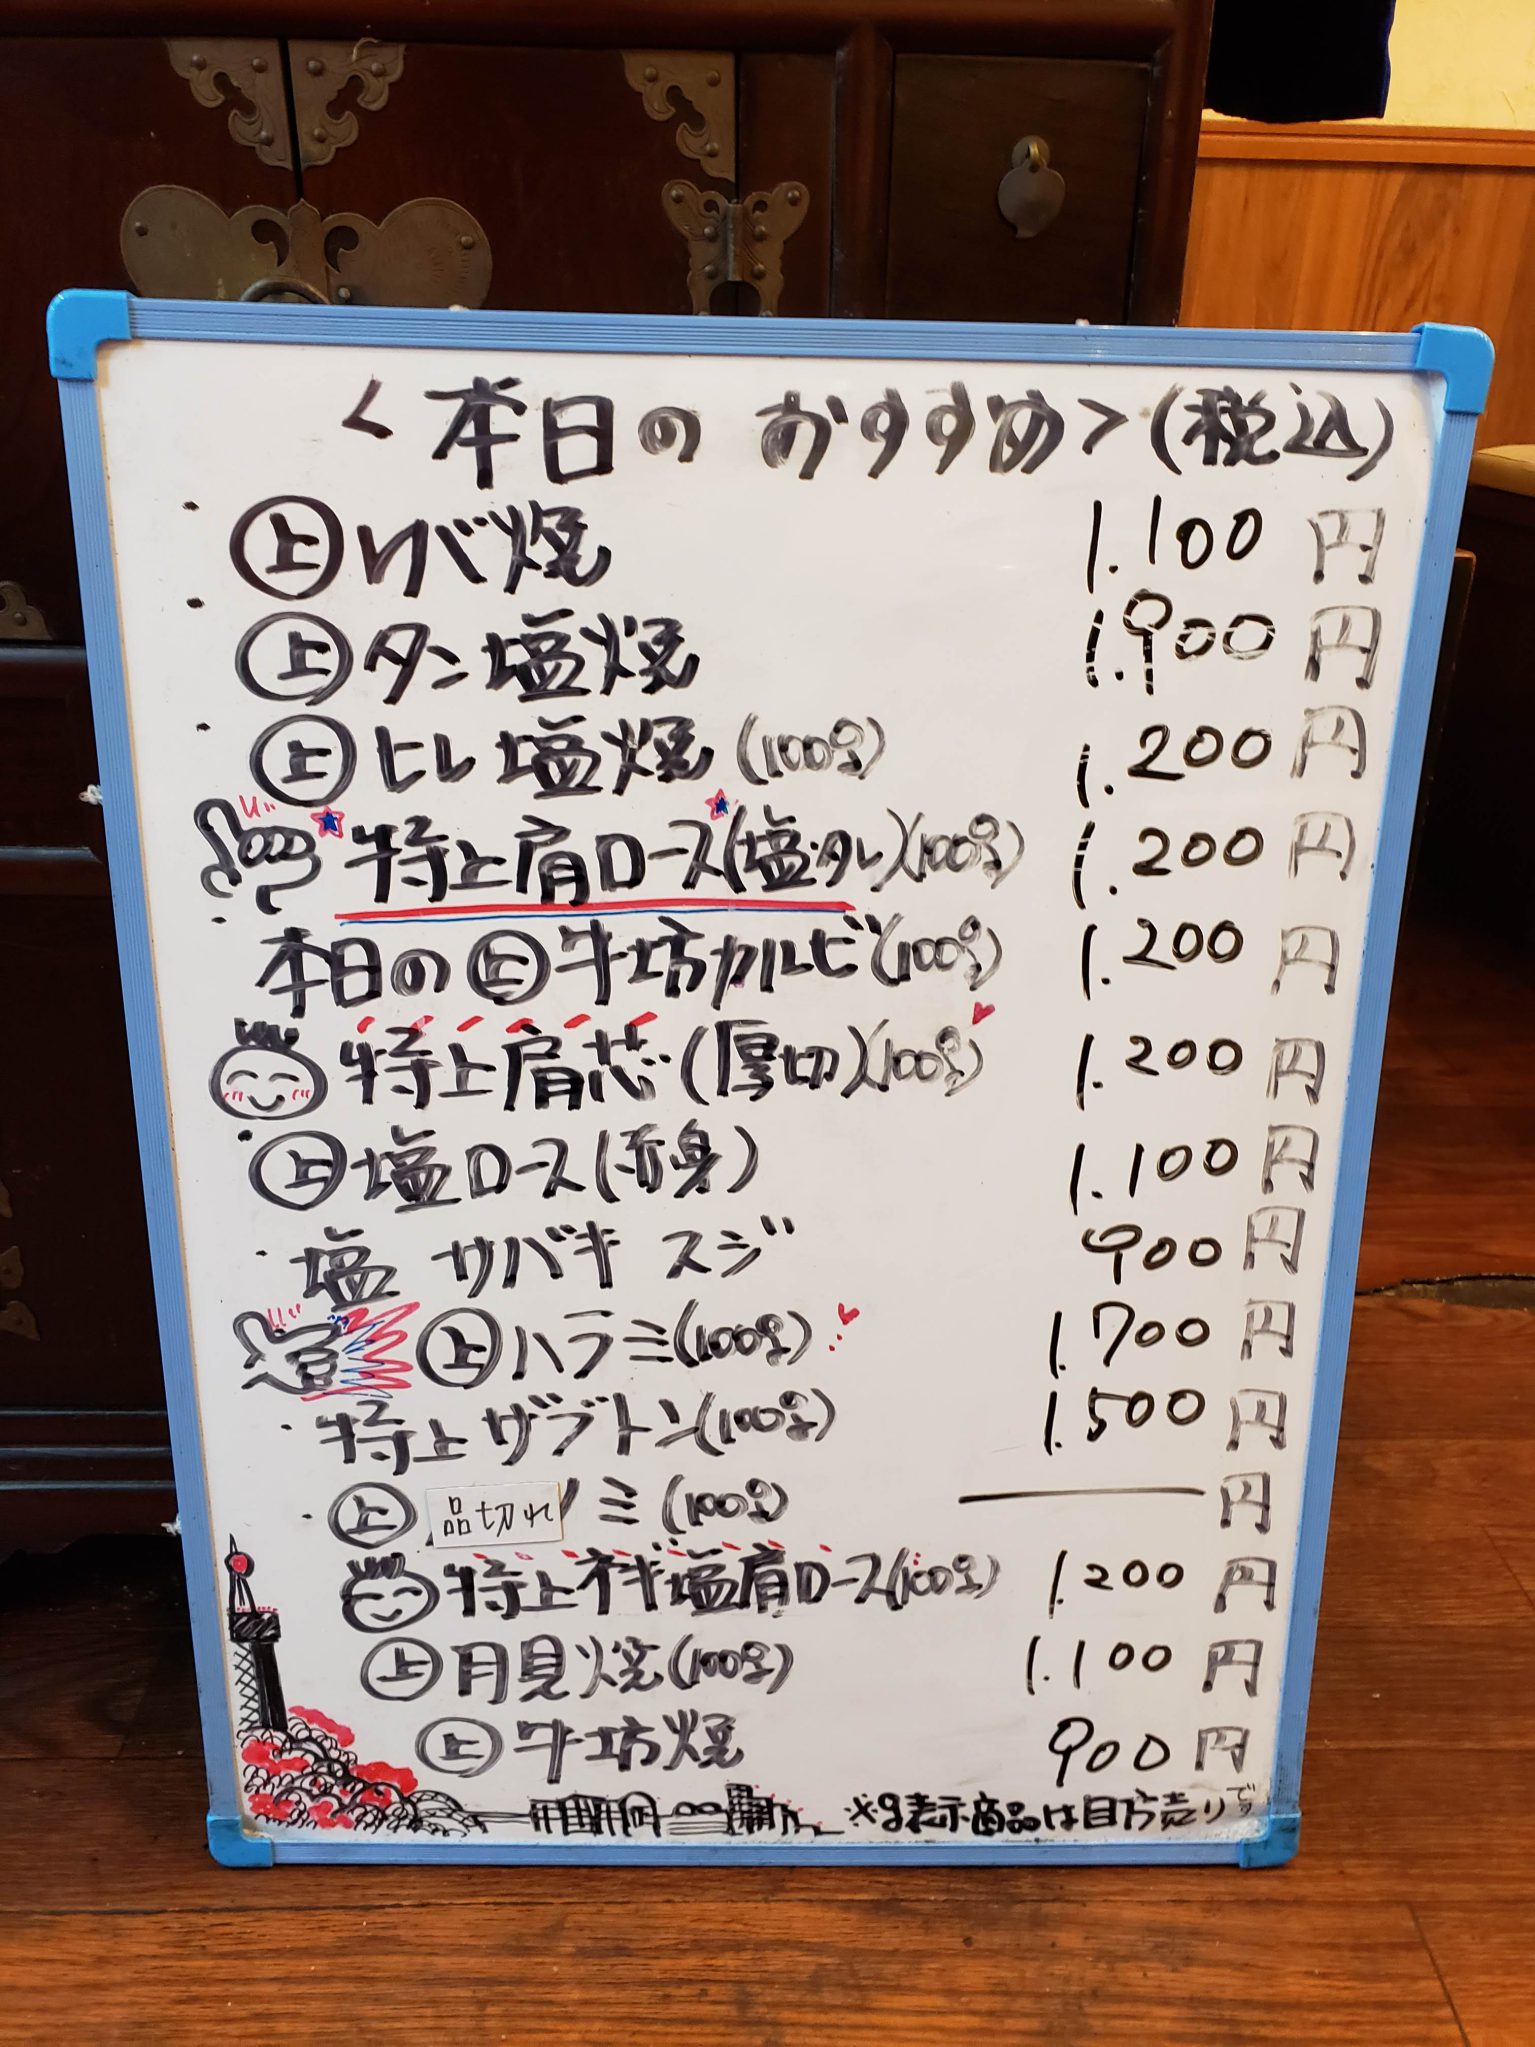 <本日のおすすめ>(税込)
・㊤レバ焼 1.100円
・㊤タン塩焼 1.900円
・㊤ヒレ塩焼(100g) 1.200円
特上肩ロース(塩・タレ)(100g) 1.200円
・本日の㊤牛坊カルビ(100g) 1.200円
特上肩芯(厚切)(100g) 1.200円
・㊤塩ロース(赤身) 1.100円
・塩 サバキ スジ 900円
㊤ハラミ(100g) 1.700円
・特上ザブトン(100g) 1.500円
・㊤ 品切れ ミ(100g) 円
特上ネギ塩肩ロース(100g) 1.200円
㊤月見焼(100g) 1.100円
㊤牛坊焼 900円
※g表示商品は目方売りです